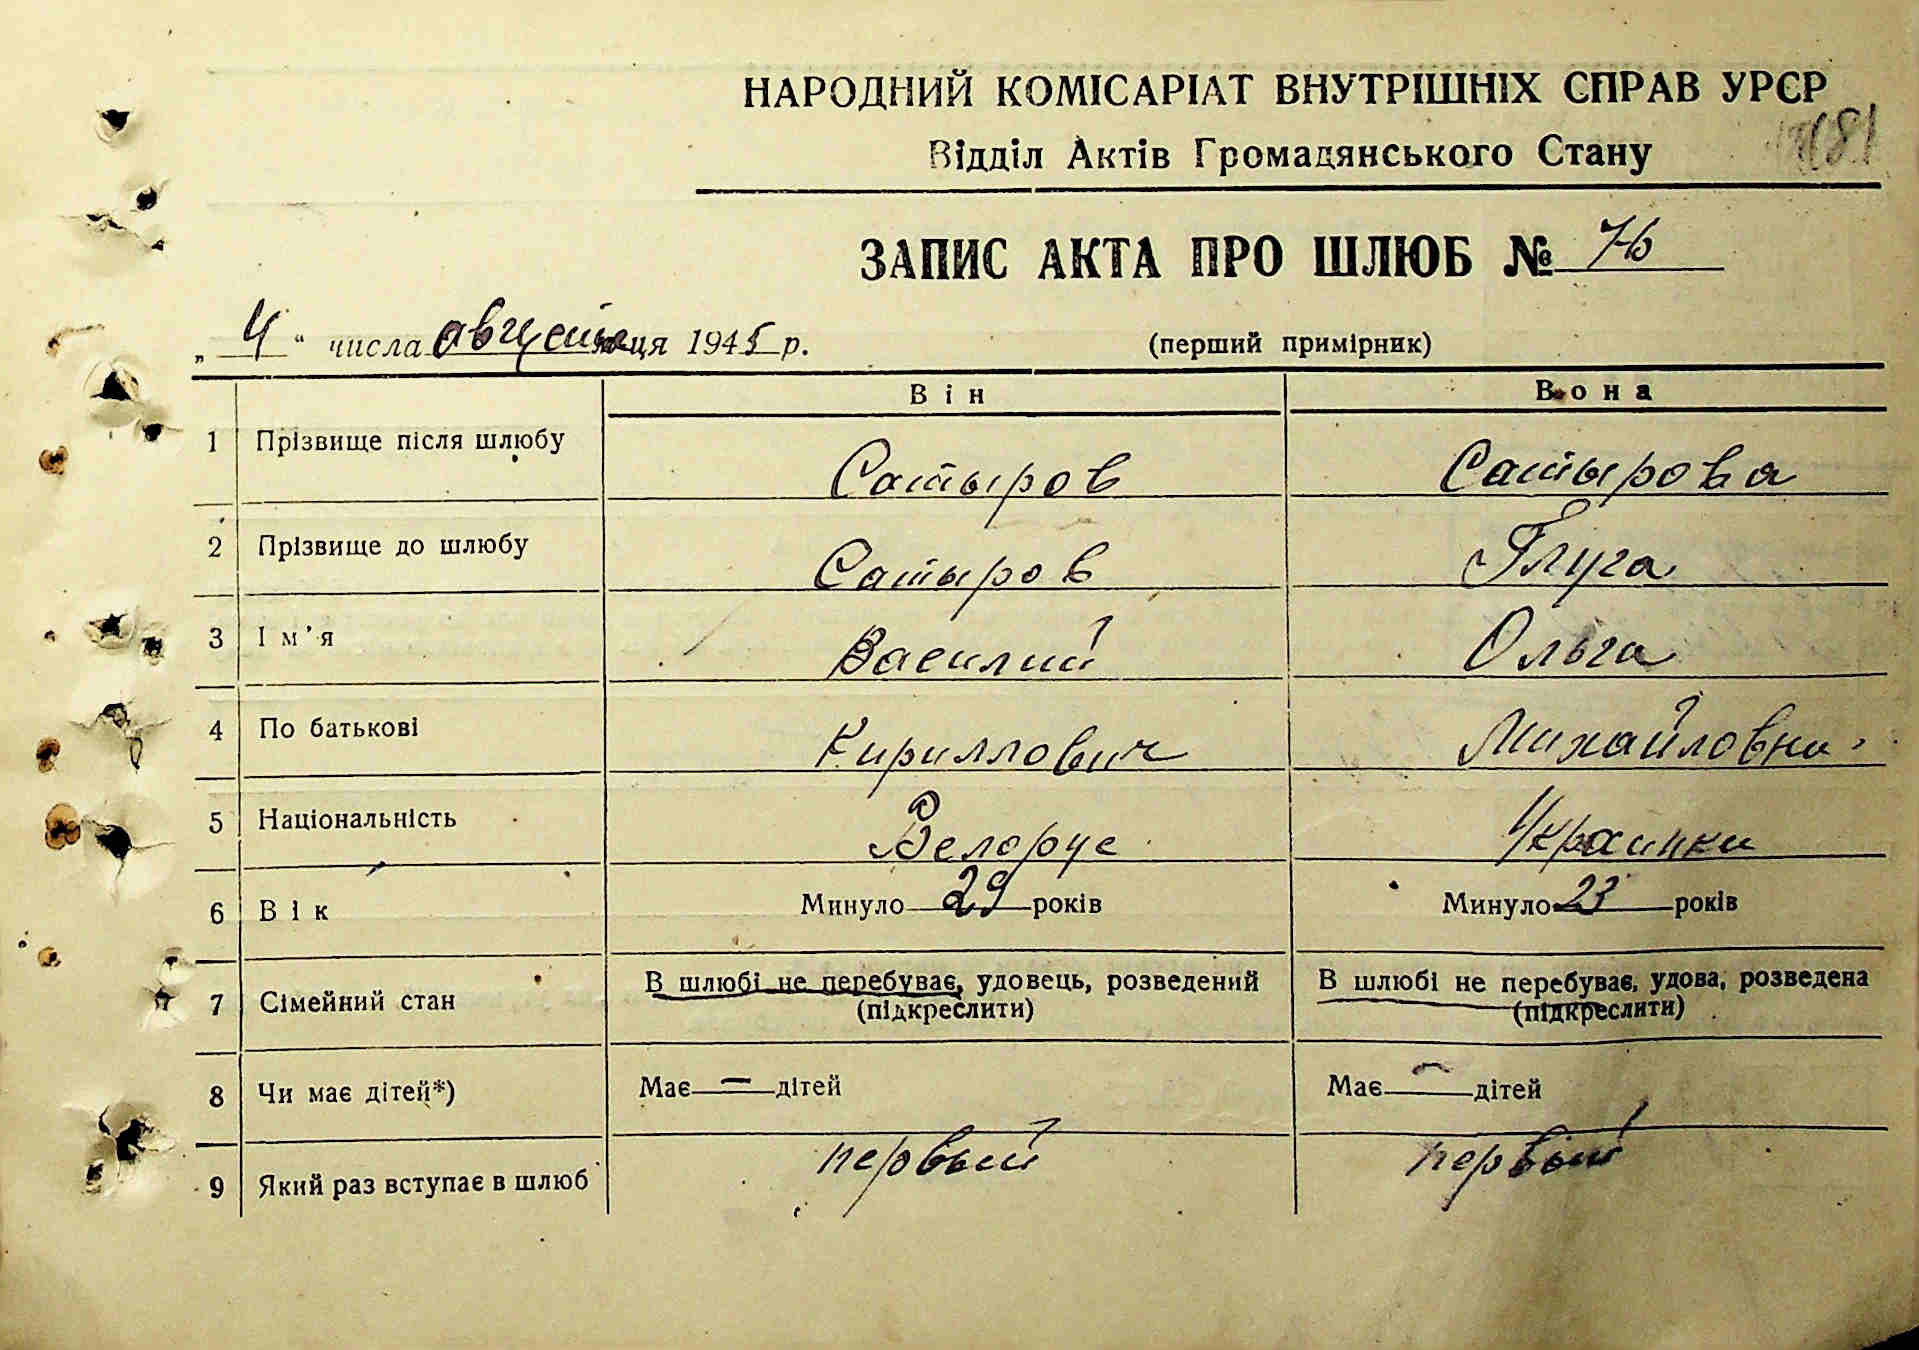 НАРОДНИЙ КОМІСАРІАТ ВНУТРІШНІХ СПРАВ УРСР
Відділ Актів Громадянського Стану
ЗАПИС АКТА ПРО ШЛЮБ № 76
„ 4 “ числа августа місяця 1945 р. (перший примірник)
Він Вона
1 Прізвище після шлюбу Сатыров Сатырова
2 Прізвище до шлюбу Сатыров Глуга
3 Ім'я Василий Ольга
4 По батькові Кириллович Михайловна
5 Національність Белорус Украинка
6 Вік Минуло 29 років Минуло 23 років
7 Сімейний стан В шлюбі не перебуває, удовець, розведений В шлюбі не перебуває, удова, розведена
(підкреслити) (підкреслити)
8 Чи має дітей*) Має — дітей Має — дітей
9 Який раз вступає в шлюб первый первый